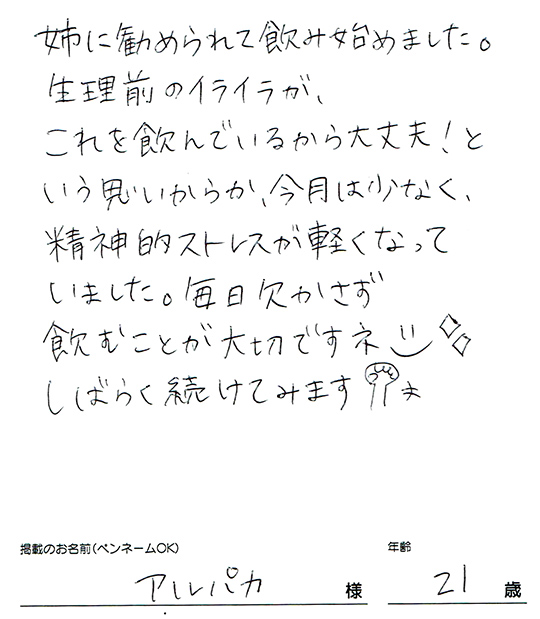 姉に勧められて飲み始めました。
生理前のイライラが、
これを飲んでいるから大丈夫!と
いう思いからか、今月は少なく、
精神的ストレスが軽くなって
いました。毎日欠かさず
飲むことが大切ですネ
しばらく続けてみます
掲載のお名前(ペンネームOK)
年齢
アルパカ 様
21 歳